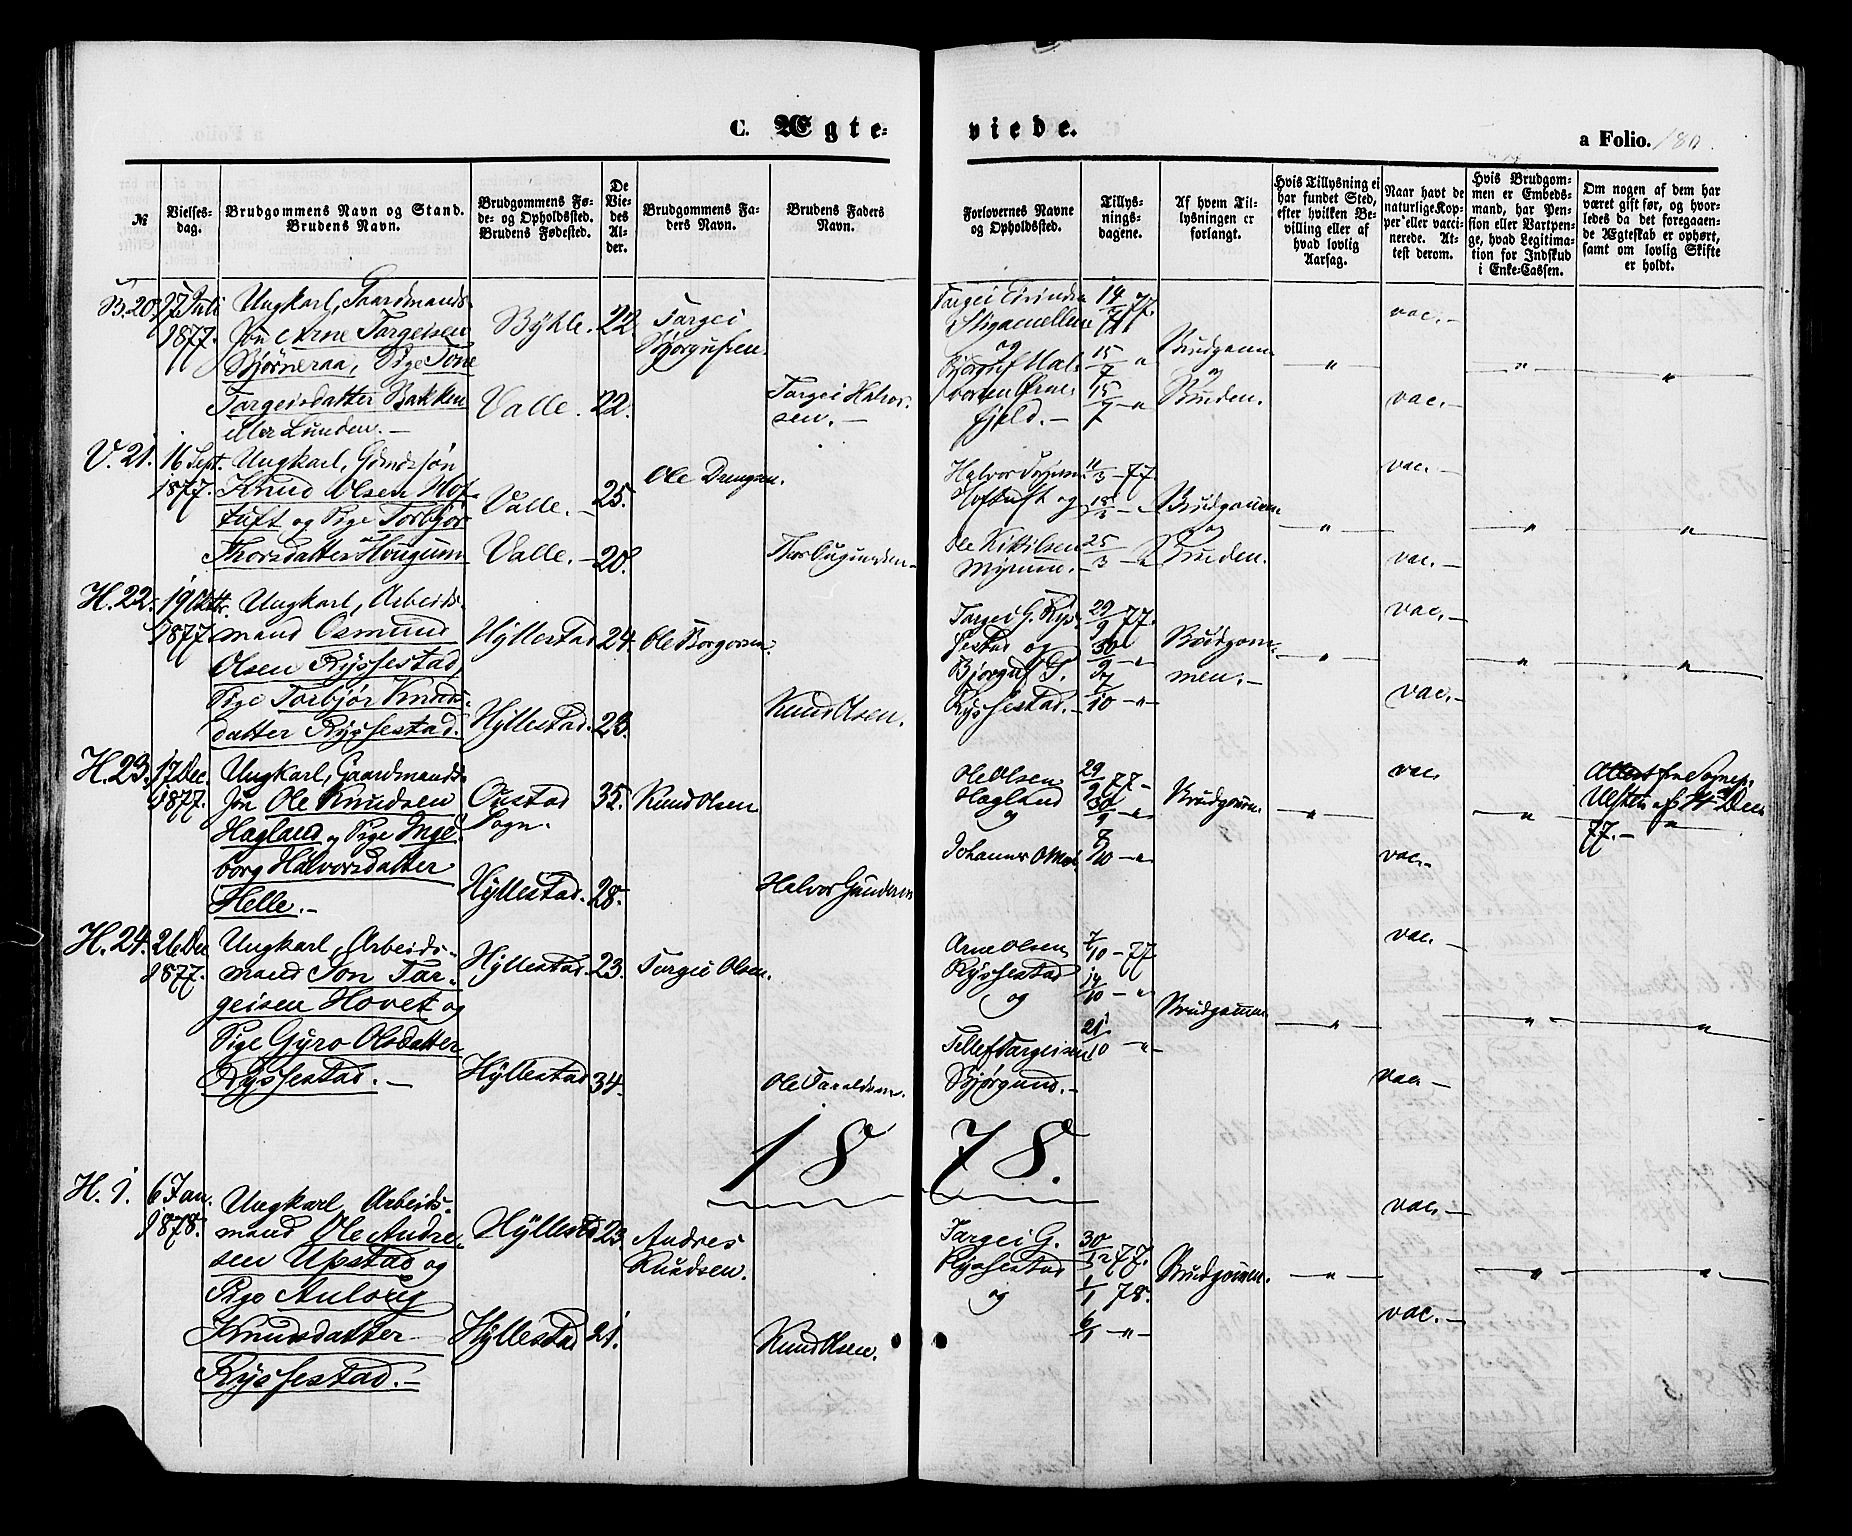 C. Ægte-
viede.
a Folio. 180.
№
Vielses-
dag.
Brudgommens Navn og Stand.
Brudens Navn.
Brudgommens Fø-
de- og Opholdssted.
Brudens Fødested.
De
Vie-
des
Al-
der.
Brudgommens Fa-
ders Navn.
Brudens Faders
Navn.
Forlovernes Navne
og Opholdssted.
Tillys-
nings-
dagene.
Af hvem Til-
lysningen er
forlangt.
Hvis Tillysning ei
har fundet Sted,
efter hvilken Be-
villing eller af
hvad lovlig
Aarsag.
Naar havt de
naturlige Kop-
per eller vacci-
nerede. At-
test derom.
Hvis Brudgom-
men er Embeds-
mand, har Pen-
sion eller Vartpen-
ge, hvad Legitima-
tion for Indskud
i Enke-Cassen.
Om nogen af dem har
været gift før, og hvor-
ledes da det foregaaen-
de Ægteskab er ophørt,
samt om lovlig Skifte
er holdt.
B. 20. 17 Juli
1877.
Ungkarl, Gaardmands-
Søn Arne Targeisen
Bjørneraa, Pige Tone
Targeisdatter Bakken
eller Lunden.—
Bykle. 22.
Valle. 22.
Targei
Bjørgufsen.
Targei Halvor-
sen.—
Targei Eivindsen
og
fjeld.—
14/7 77.
15/7 — "
15/7 — "
Brudgommen
og
Bruden.
"
vac.—
vac.—
"
"
V. 21. 16 Sept.
1877.
Ungkarl, Gmdssøn
Knud Olsen Hof-
tuft og Pige Torbjør
Thorsdatter Haugum
Valle.— 25.
Valle.— 20.
Ole Drengsen.
Halvor
Hoftuft og
Ole Kittilsen
Myrum.—
11/3 — 77.
18/3 — "
25/3 — "
Brudgommen
og
Bruden.
"
vac.—
vac.—
"
"
H. 22. 19 Octbr.
1877.
Ungkarl, Arbeids-
mand Osmund
Olsen Ryssestad,
Pige Torbjør Knuds-
datter Ryssestad.
Hyllestad 24.
Hyllestad. 23.
Ole Torgersen.
Knud Olsen.
Targei G. Rys-
sestad og
Bjørguf T.
Ryssestad.—
29/9 77.
30/9 — "
7/10 — "
Brudgom-
men.—
"
vac.—
vac.—
"
"
H. 23. 17 Dec.
1877.
Ungkarl, Gaardmands-
Søn Ole Knudsen
Hagland og Pige Inge-
borg Halvorsdatter
Helle.—
Oustad
Sogn.
35.
Hyllestad. 28.
Knud Olsen
Halvor Gundersen
Ole Olsen
Hagland
og
Johannes O.
29/9 77.—
30/9 — "
7/10 — "
Brudgommen.
"
vac.
vac.—
"
Attest fra Sognep.
Ulsten af 14 Dec.
77.— "
H. 24. 26 Dec
1877.
Ungkarl, Arbeids-
mand Jon Tar-
geisen Hovet og
Pige Gyro Olsdatter
Ryssestad.—
Hyllestad. 23.
Hyllestad 34.
Targei Olsen.
Ole Taraldsen.
Arne Olsen
Ryssestad
og
Tellef Targeisen
Bjørgum.—
7/10 — 77
14/10 — "
21/10 — "
Brudgommen
"
vac.—
vac.—
"
"
1878.
H. 1. 6 Jan.
1878.
Ungkarl, Arbeids-
mand Ole Andre-
sen Upstad og
Pige Anlaug
Knudsdatter
Ryssestad.—
Hyllestad 23.
Hyllestad 21.
Andres
Knudsen.
Knud Olsen.
Targei G.
Ryssestad
og
30/12 77.
1/1 78.
6/1 — "
Brudgommen.
"
vac.—
vac.—
"
"